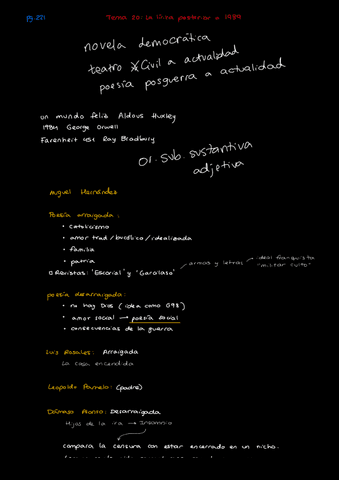 pg. 221
Tema 20: La posterior a 1939
novela democrática
teatro XCivil a actualidad
poesía posguerra a actualidad
un mundo feliz Aldous Huxley
1984 George Orwell
Farenheit 451 Ray Bradbury
01. sub. sustantiva
adjetiva
Miguel Hernández
Poesía arraigada:
• catolicismo
• amor trad / bucólico / idealizada
• familia
• patria
O Revistas: "Escorial" y "Garcilaso" armas y letras ideal franquista
"militar culto"
poesía desarraigada:
• no hay Dios (idea como G98)
• amor social → poesía social
• consecuencias de la guerra
Luis Rosales: Arraigada
La casa encendida
Leopoldo Panero: (padre)
Dámaso Alonso: Desarraigada
Hijos de la ira → Insomnio
compara la censura con estar encerrado en un nicho.